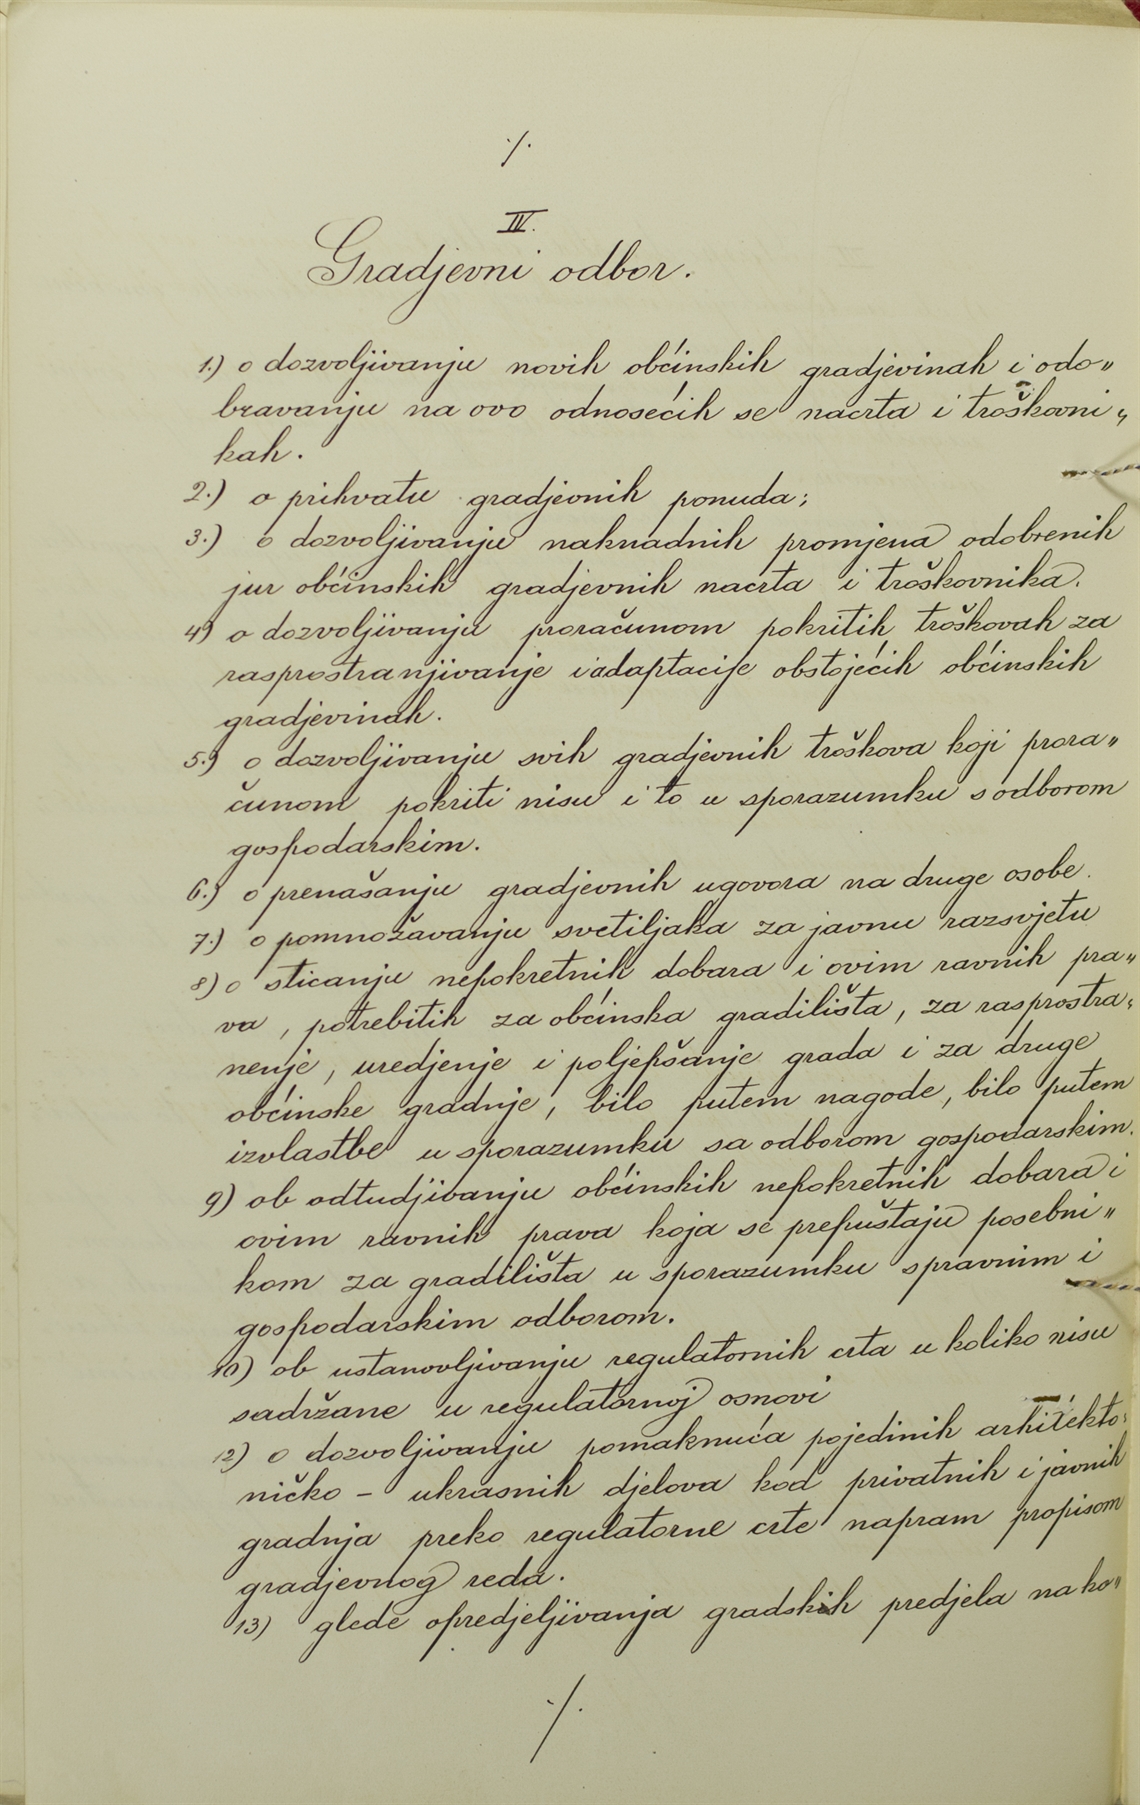 ./.
IV.
Gradjevni odbor.
1.) o dozvoljivanju novih obćinskih gradjevinah i odo„
bravanju na ovo odnosećih se nacrta i troškovni„
kah.
2.) o prihvatu gradjevnih ponuda;
3.) o dozvoljivanju naknadnih promjena odobrenih
jur obćinskih gradjevnih nacrta i troškovnika.
4) o dozvoljivanju proračunom pokritih troškovah za
rasprostranjivanje i adaptacije obstojećih obćinskih
gradjevinah.
5.) o dozvoljivanju svih gradjevnih troškova koji prora„
čunom pokriti nisu i to u sporazumku s odborom
gospodarskim.
6.) o prenašanju gradjevnih ugovora na druge osobe.
7.) o pomnožavanju svetiljaka za javnu razsvjetu
8) o sticanju nepokretnih dobara i ovim ravnih pra„
va, potrebitih za obćinska gradilišta, za rasprostra„
nenje, uredjenje i poljepšanje grada i za druge
obćinske gradnje, bilo putem nagode, bilo putem
izvlastbe u sporazumku sa odborom gospodarskim.
9) ob odtudjivanju obćinskih nepokretnih dobara i
ovim ravnih prava koja se prepuštaju posebni„
kom za gradilišta u sporazumku s pravnim i
gospodarskim odborom.
10) ob ustanovljivanju regulatornih crta u koliko nisu
sadržane u regulatornoj osnovi
12) o dozvoljivanju pomaknuća pojedinih arhitekto„
ničko - ukrasnih djelova kod privatnih i javnih
gradnja preko regulatorne crte napram propisom
gradjevnog reda.
13) glede opredjeljivanja gradskih predjela na ko„
./.